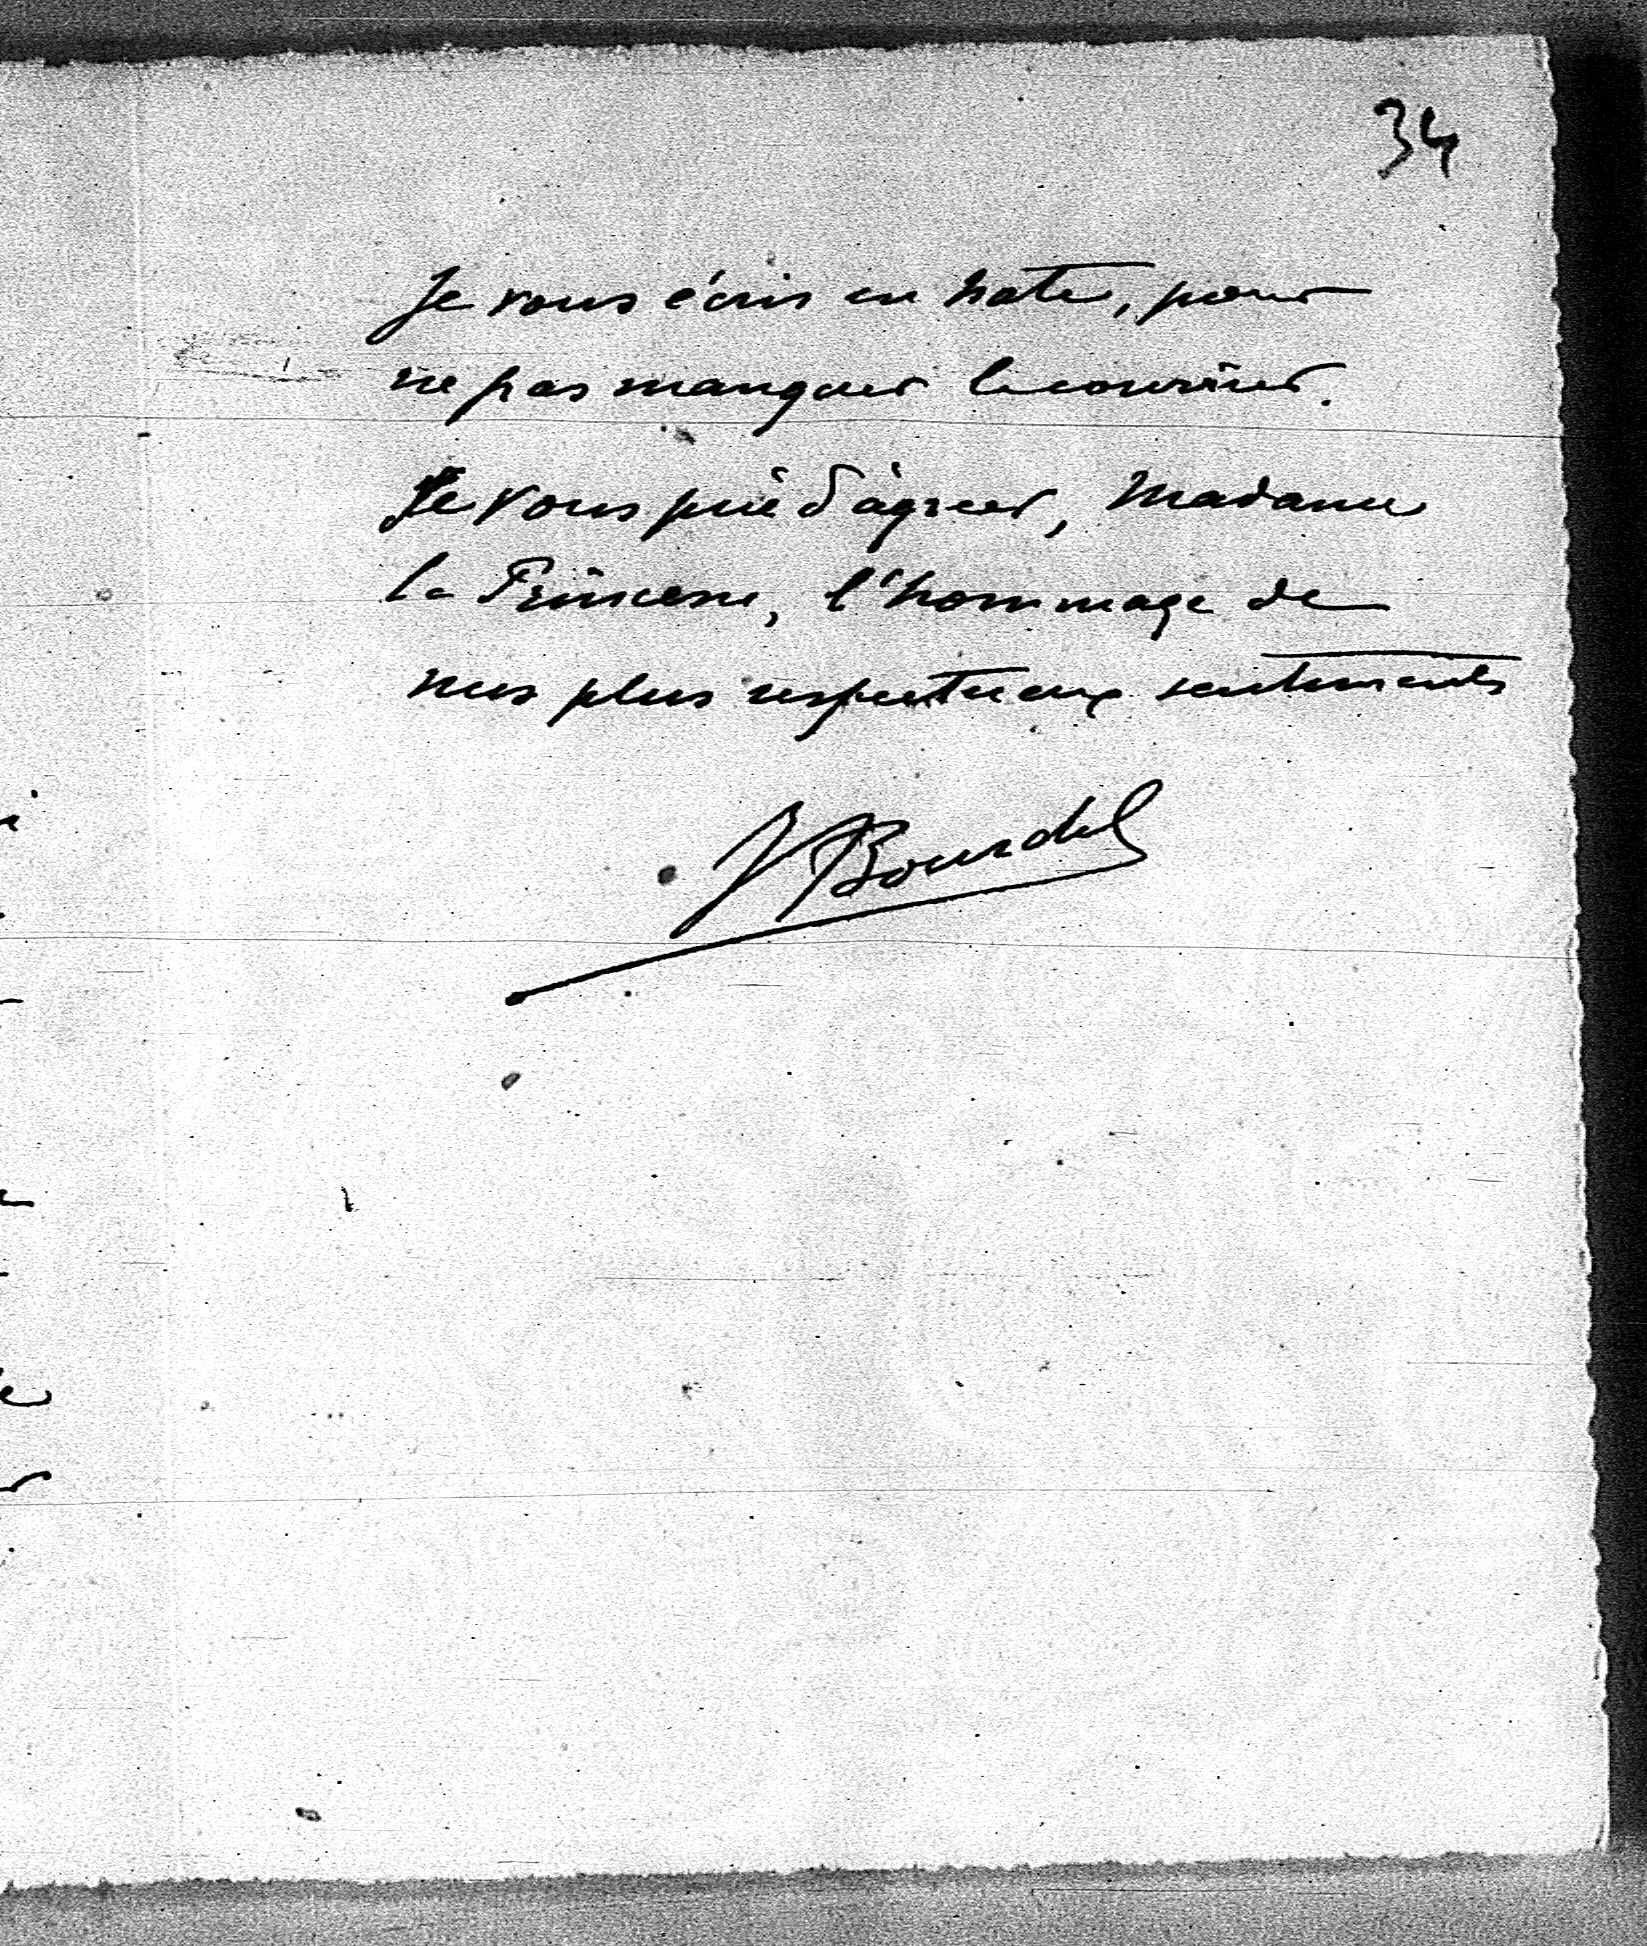 34
Je vous écris en hate, pour
ne pas manquer le courrier.
Je vous prie d'agréer, Madame
la Princesse, l'hommage de
mes plus respectueux sentiments
Bourdel